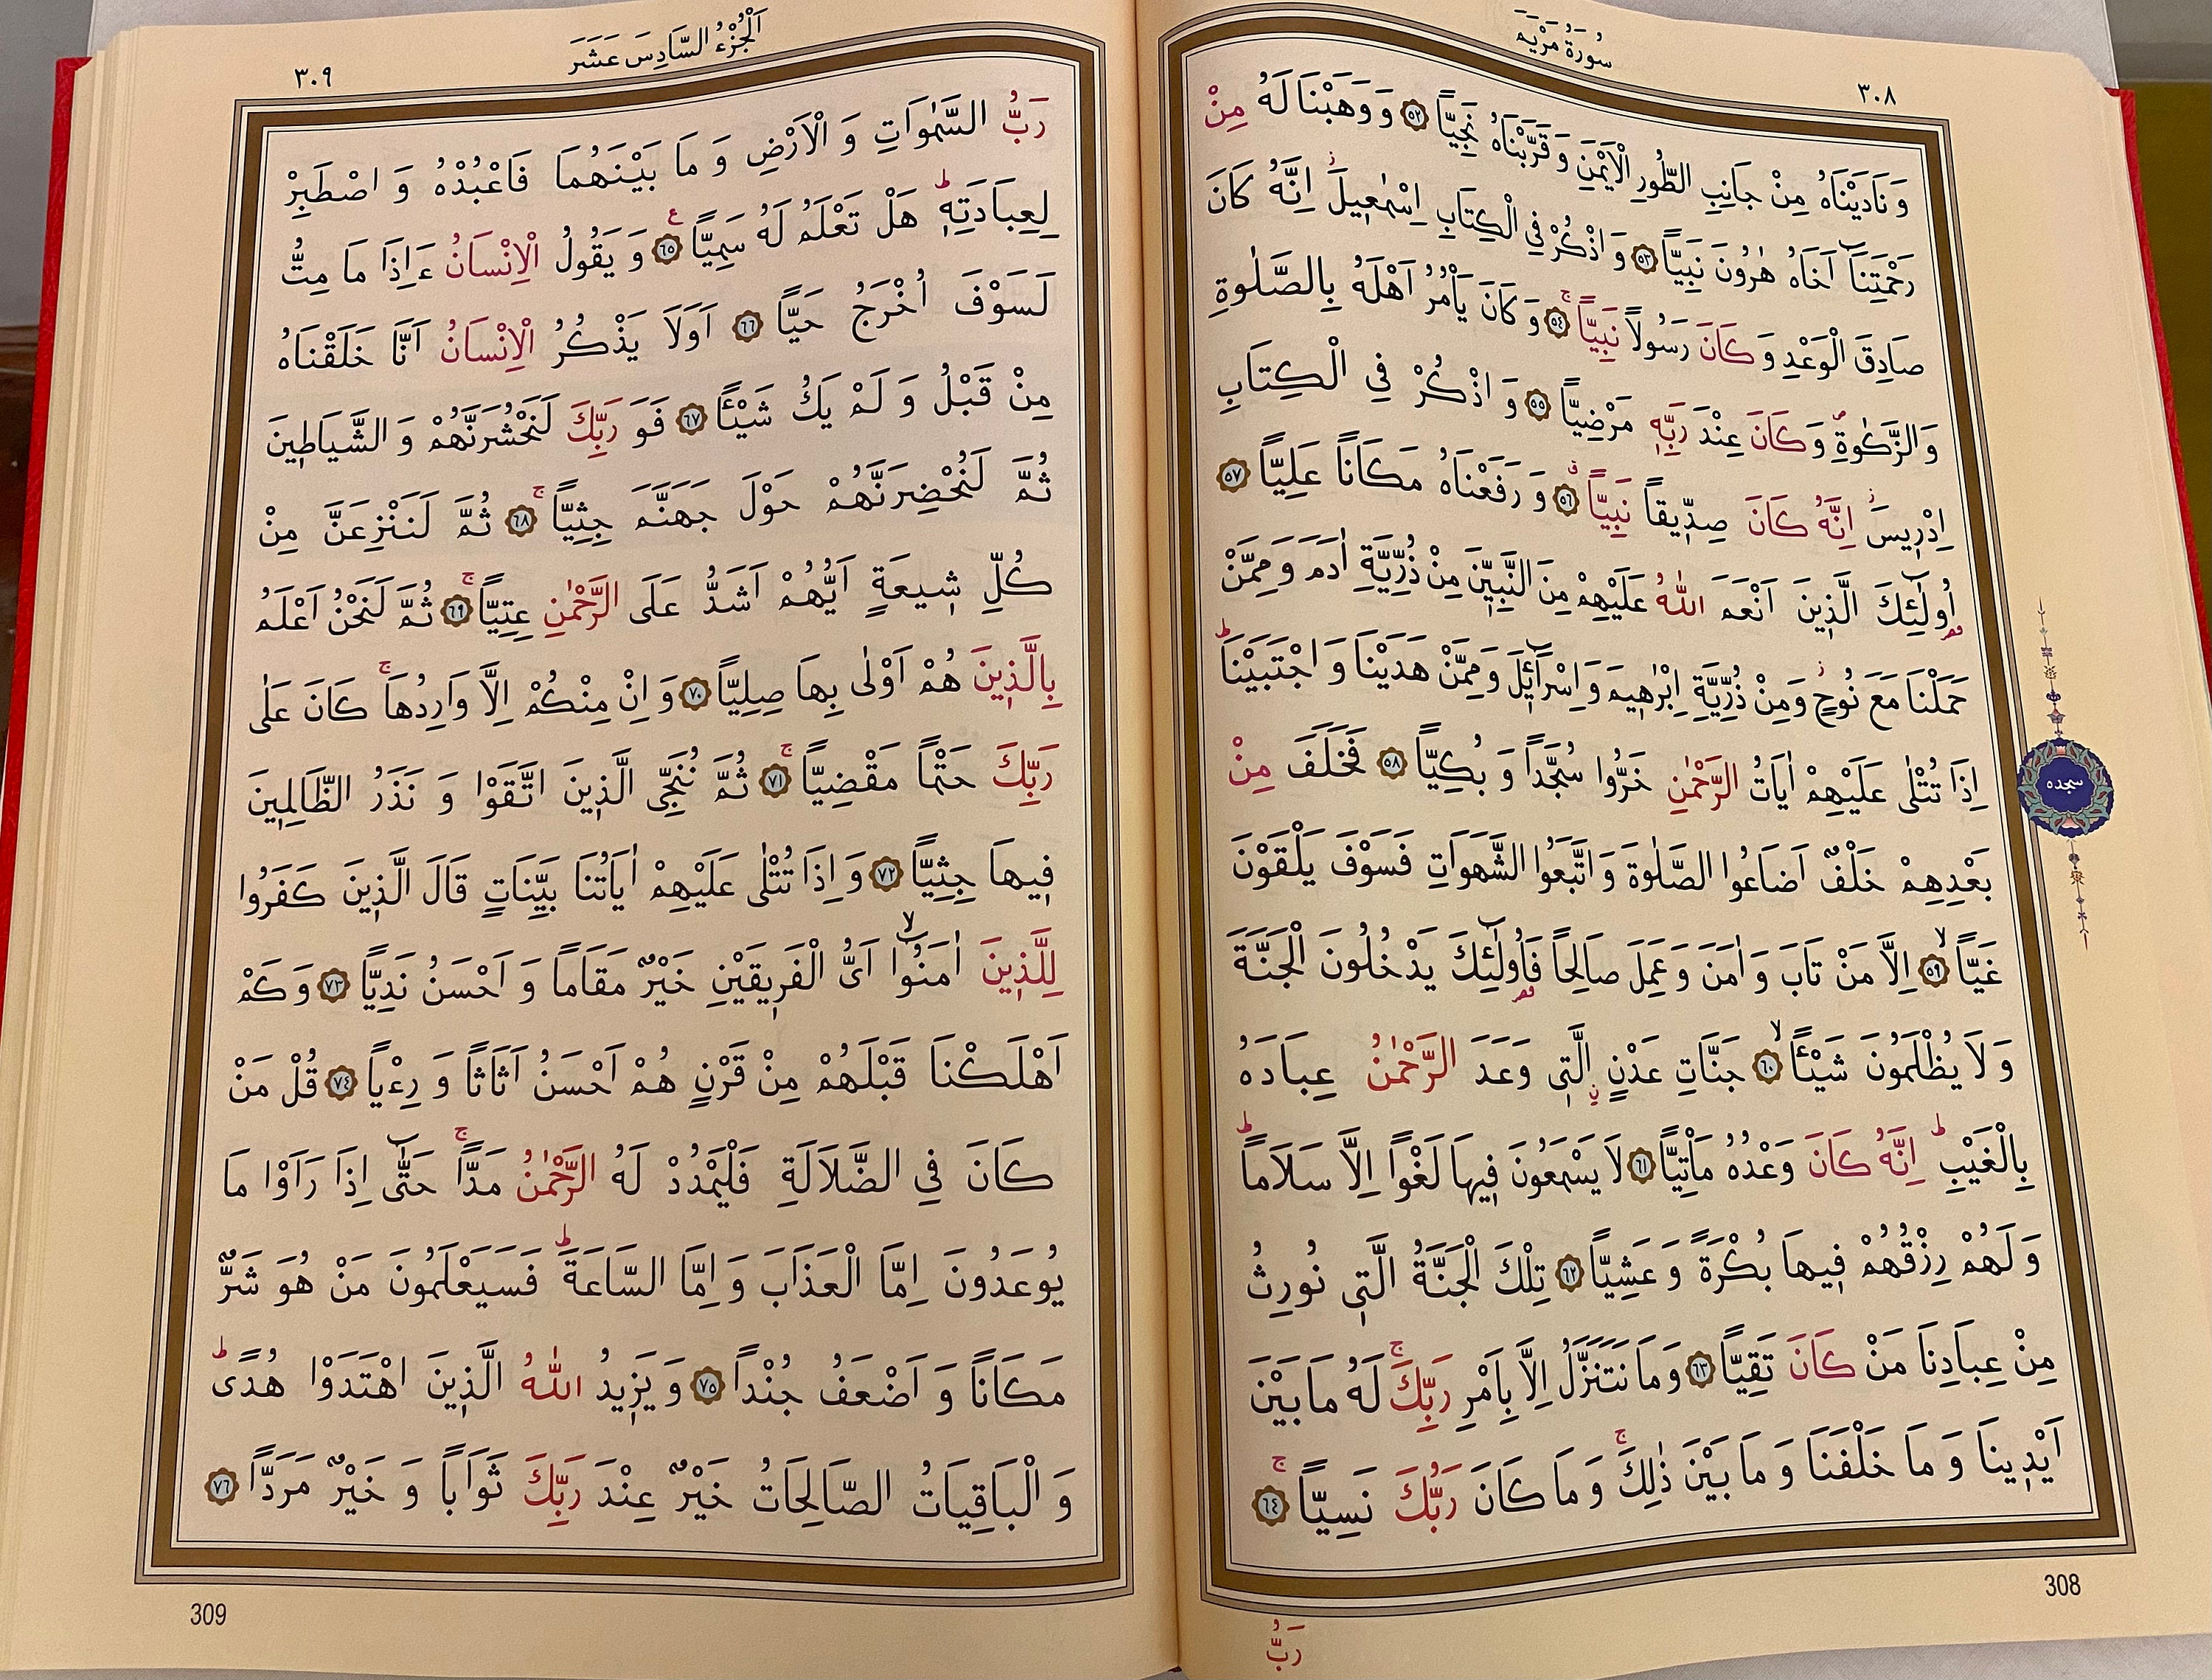 سُورَةُ مَرْيَمَ
٣٠٨
وَنَادَيْنَاهُ مِنْ جَانِبِ الطُّورِ الْاَيْمَنِ وَقَرَّبْنَاهُ نَجِيًّا ﴿٥٢﴾ وَوَهَبْنَا لَهُ مِنْ
رَحْمَتِنَٓا اَخَاهُ هٰرُونَ نَبِيًّا ﴿٥٣﴾ وَاذْكُرْ فِي الْكِتَابِ اِسْمٰعٖيلَؗ اِنَّهُ كَانَ
صَادِقَ الْوَعْدِ وَكَانَ رَسُولاً نَبِيًّاۚ ﴿٥٤﴾ وَكَانَ يَأْمُرُ اَهْلَهُ بِالصَّلٰوةِ
وَالزَّكٰوةِࣕ وَكَانَ عِنْدَ رَبِّهٖ مَرْضِيًّا ﴿٥٥﴾ وَاذْكُرْ فِي الْكِتَابِ
اِدْرٖيسَؗ اِنَّهُ كَانَ صِدّٖيقاً نَبِيًّاࣗ ﴿٥٦﴾ وَرَفَعْنَاهُ مَكَاناً عَلِيًّا ﴿٥٧﴾
اُو۬لٰٓئِكَ الَّذٖينَ اَنْعَمَ اللّٰهُ عَلَيْهِمْ مِنَ النَّبِيّٖنَ مِنْ ذُرِّيَّةِ اٰدَمَ وَمِمَّنْ
حَمَلْنَا مَعَ نُوحٍؗ وَمِنْ ذُرِّيَّةِ اِبْرٰهٖيمَ وَاِسْرَٓائٖلَ وَمِمَّنْ هَدَيْنَا وَاجْتَبَيْنَاؕ
اِذَا تُتْلٰى عَلَيْهِمْ اٰيَاتُ الرَّحْمٰنِ خَرُّوا سُجَّداً وَبُكِيًّا ﴿٥٨﴾ فَخَلَفَ مِنْ
سجده
بَعْدِهِمْ خَلْفٌ اَضَاعُوا الصَّلٰوةَ وَاتَّبَعُوا الشَّهَوَاتِ فَسَوْفَ يَلْقَوْنَ
غَيًّاۙ ﴿٥٩﴾ اِلَّا مَنْ تَابَ وَاٰمَنَ وَعَمِلَ صَالِحاً فَاُو۬لٰٓئِكَ يَدْخُلُونَ الْجَنَّةَ
وَلَا يُظْلَمُونَ شَيْـٔاًۙ ﴿٦٠﴾ جَنَّاتِ عَدْنٍۨ الَّتٖي وَعَدَ الرَّحْمٰنُ عِبَادَهُ
بِالْغَيْبِؕ اِنَّهُ كَانَ وَعْدُهُ مَأْتِيًّا ﴿٦١﴾ لَا يَسْمَعُونَ فٖيهَا لَغْواً اِلَّا سَلَاماًؕ
وَلَهُمْ رِزْقُهُمْ فٖيهَا بُكْرَةً وَعَشِيًّا ﴿٦٢﴾ تِلْكَ الْجَنَّةُ الَّتٖي نُورِثُ
مِنْ عِبَادِنَا مَنْ كَانَ تَقِيًّا ﴿٦٣﴾ وَمَا نَتَنَزَّلُ اِلَّا بِاَمْرِ رَبِّكَۚ لَهُ مَا بَيْنَ
اَيْدٖينَا وَمَا خَلْفَنَا وَمَا بَيْنَ ذٰلِكَۚ وَمَا كَانَ رَبُّكَ نَسِيًّاۚ ﴿٦٤﴾
308
رَبُّ
اَلْجُزْءُ السَّادِسَ عَشَرَ
٣٠٩
رَبُّ السَّمٰوَاتِ وَالْاَرْضِ وَمَا بَيْنَهُمَا فَاعْبُدْهُ وَاصْطَبِرْ
لِعِبَادَتِهٖؕ هَلْ تَعْلَمُ لَهُ سَمِيًّا ﴿٦٥﴾ ع وَيَقُولُ الْاِنْسَانُ ءَاِذَا مَا مِتُّ
لَسَوْفَ اُخْرَجُ حَيًّا ﴿٦٦﴾ اَوَلَا يَذْكُرُ الْاِنْسَانُ اَنَّا خَلَقْنَاهُ
مِنْ قَبْلُ وَلَمْ يَكُ شَيْـٔاً ﴿٦٧﴾ فَوَرَبِّكَ لَنَحْشُرَنَّهُمْ وَالشَّيَاطٖينَ
ثُمَّ لَنُحْضِرَنَّهُمْ حَوْلَ جَهَنَّمَ جِثِيًّاۚ ﴿٦٨﴾ ثُمَّ لَنَنْزِعَنَّ مِنْ
كُلِّ شٖيعَةٍ اَيُّهُمْ اَشَدُّ عَلَى الرَّحْمٰنِ عِتِيًّاۚ ﴿٦٩﴾ ثُمَّ لَنَحْنُ اَعْلَمُ
بِالَّذٖينَ هُمْ اَوْلٰى بِهَا صِلِيًّا ﴿٧٠﴾ وَاِنْ مِنْكُمْ اِلَّا وَارِدُهَاۚ كَانَ عَلٰى
رَبِّكَ حَتْماً مَقْضِيًّاۚ ﴿٧١﴾ ثُمَّ نُنَجِّي الَّذٖينَ اتَّقَوْا وَنَذَرُ الظَّالِمٖينَ
فٖيهَا جِثِيًّا ﴿٧٢﴾ وَاِذَا تُتْلٰى عَلَيْهِمْ اٰيَاتُنَا بَيِّنَاتٍ قَالَ الَّذٖينَ كَفَرُوا
لِلَّذٖينَ اٰمَنُٓواۙ اَيُّ الْفَرٖيقَيْنِ خَيْرٌ مَقَاماً وَاَحْسَنُ نَدِيًّا ﴿٧٣﴾ وَكَمْ
اَهْلَكْنَا قَبْلَهُمْ مِنْ قَرْنٍ هُمْ اَحْسَنُ اَثَاثاً وَرِءْياً ﴿٧٤﴾ قُلْ مَنْ
كَانَ فِي الضَّلَالَةِ فَلْيَمْدُدْ لَهُ الرَّحْمٰنُ مَدًّاۚ حَتّٰٓى اِذَا رَاَوْا مَا
يُوعَدُونَ اِمَّا الْعَذَابَ وَاِمَّا السَّاعَةَؕ فَسَيَعْلَمُونَ مَنْ هُوَ شَرٌّ
مَكَاناً وَاَضْعَفُ جُنْداً ﴿٧٥﴾ وَيَزٖيدُ اللّٰهُ الَّذٖينَ اهْتَدَوْا هُدًىؕ
وَالْبَاقِيَاتُ الصَّالِحَاتُ خَيْرٌ عِنْدَ رَبِّكَ ثَوَاباً وَخَيْرٌ مَرَدًّا ﴿٧٦﴾
309